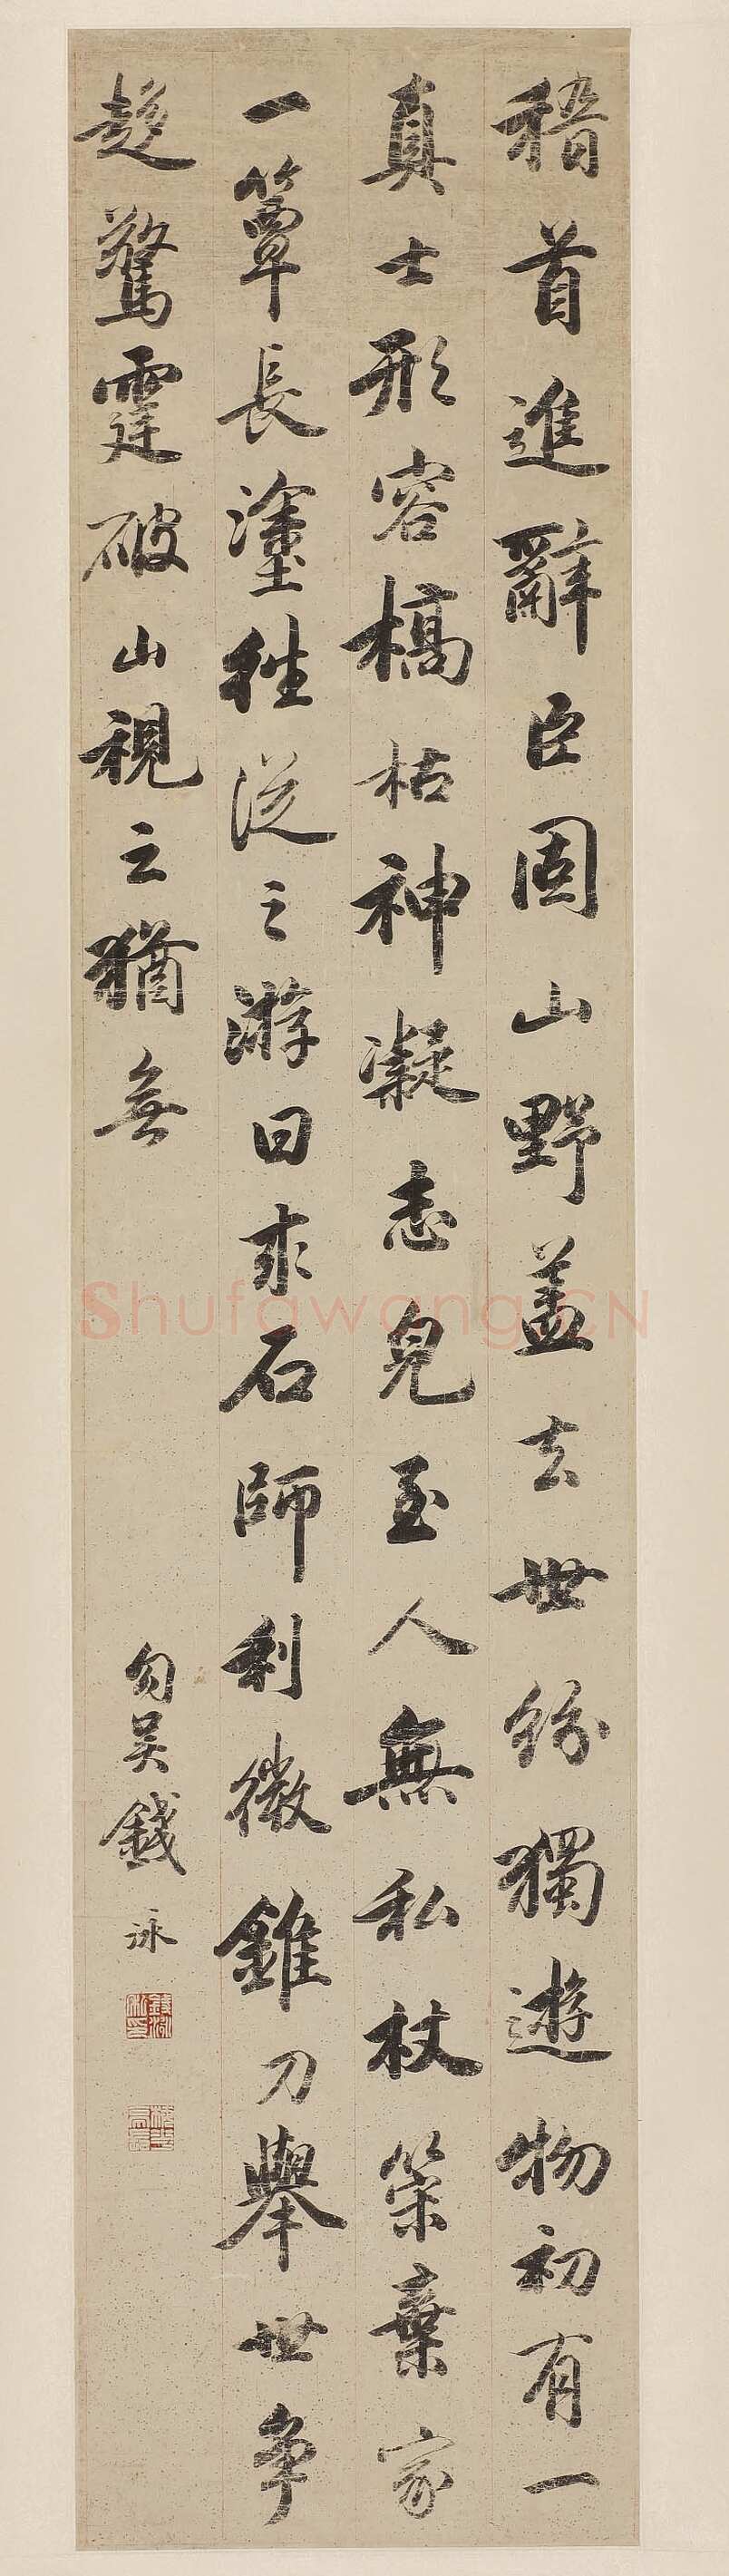 稽首進辭臣固山野蓋去世紛獨遊物初有一
真士形容槁枯神凝志皃至人無私杖策棄家
一簞長塗往從之游曰求石師利微錐刀舉世爭
趍驚霆破山視之猶無
勾吴錢泳
Shufawang.CN